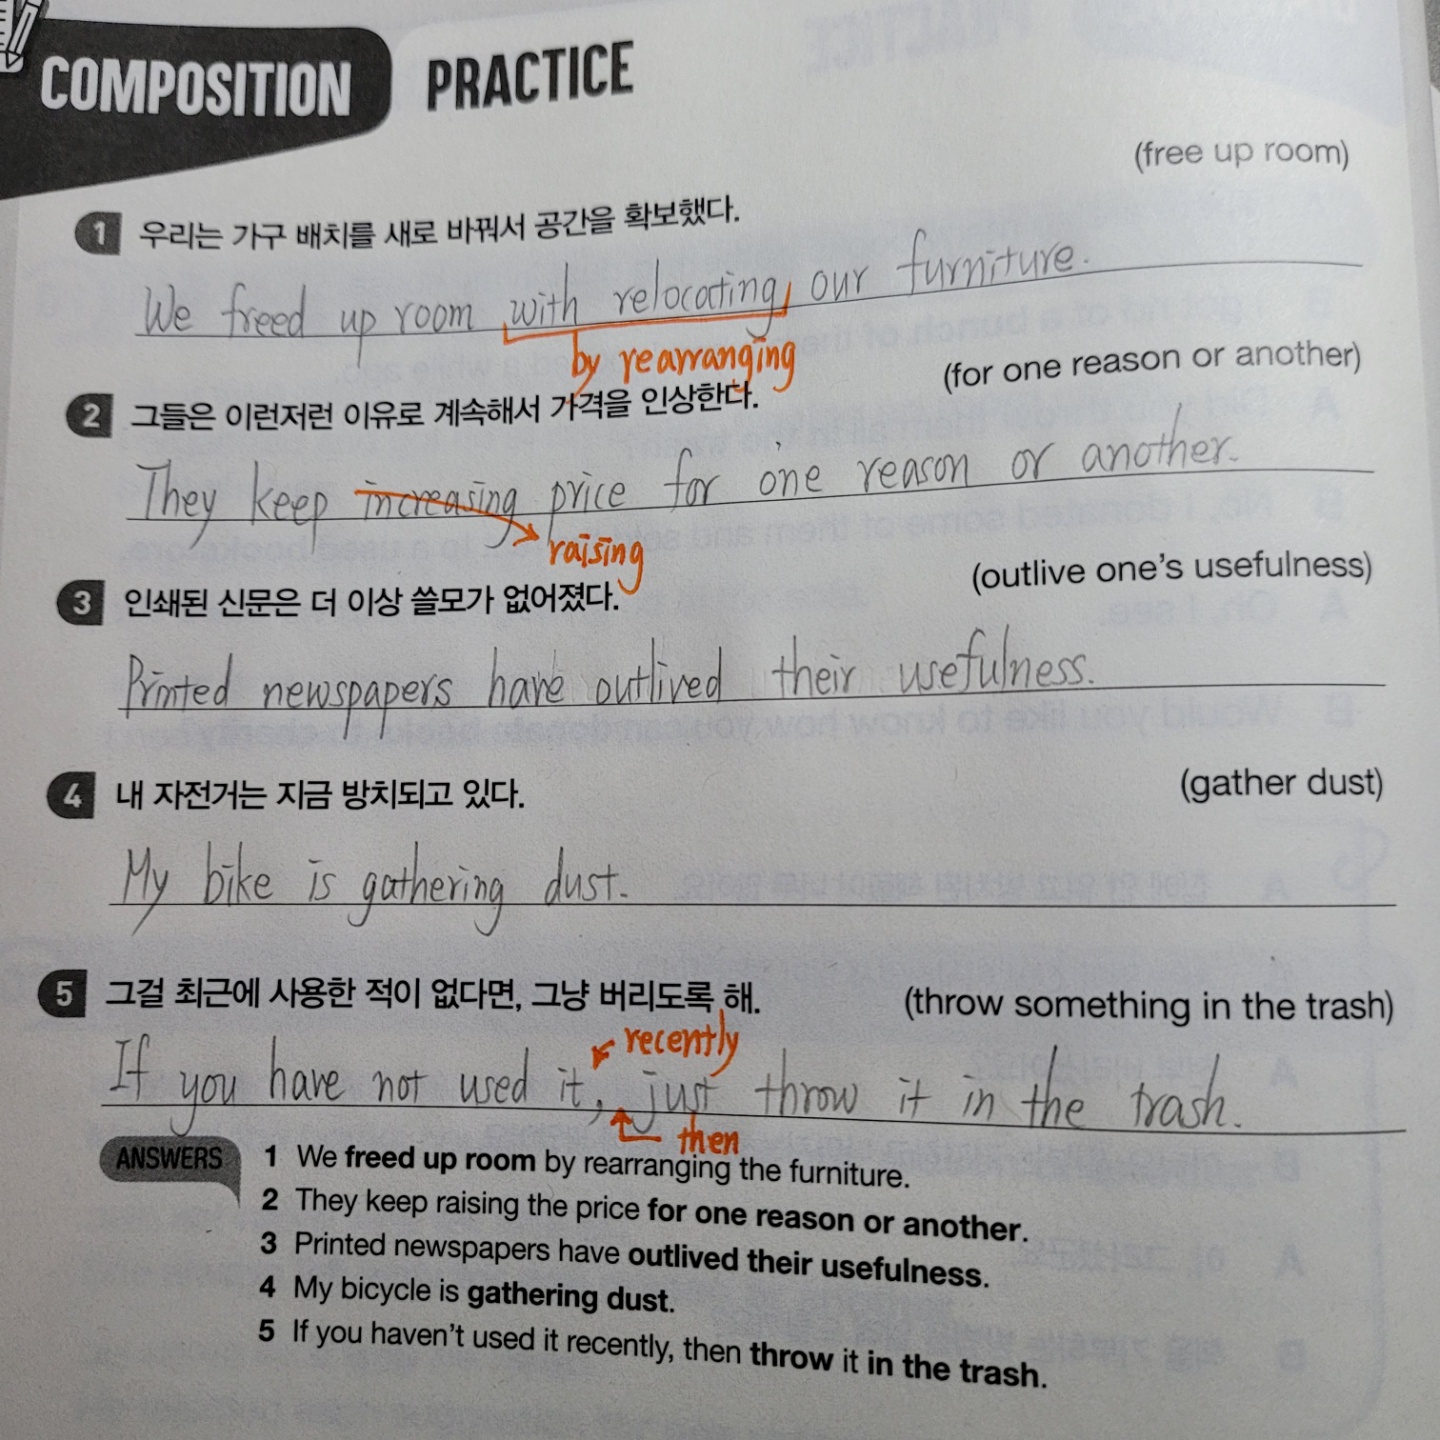 COMPOSITION PRACTICE
(free up room)
1 우리는 가구 배치를 새로 바꿔서 공간을 확보했다.
We freed up room with relocating our furniture.
by rearranging
(for one reason or another)
2 그들은 이런저런 이유로 계속해서 가격을 인상한다.
They keep increasing price for one reason or another.
raising
(outlive one's usefulness)
3 인쇄된 신문은 더 이상 쓸모가 없어졌다.
Printed newspapers have outlived their usefulness.
4 내 자전거는 지금 방치되고 있다. (gather dust)
My bike is gathering dust.
5 그걸 최근에 사용한 적이 없다면, 그냥 버리도록 해. (throw something in the trash)
recently
If you have not used it, just throw it in the trash.
then
ANSWERS 1 We freed up room by rearranging the furniture.
2 They keep raising the price for one reason or another.
3 Printed newspapers have outlived their usefulness.
4 My bicycle is gathering dust.
5 If you haven't used it recently, then throw it in the trash.